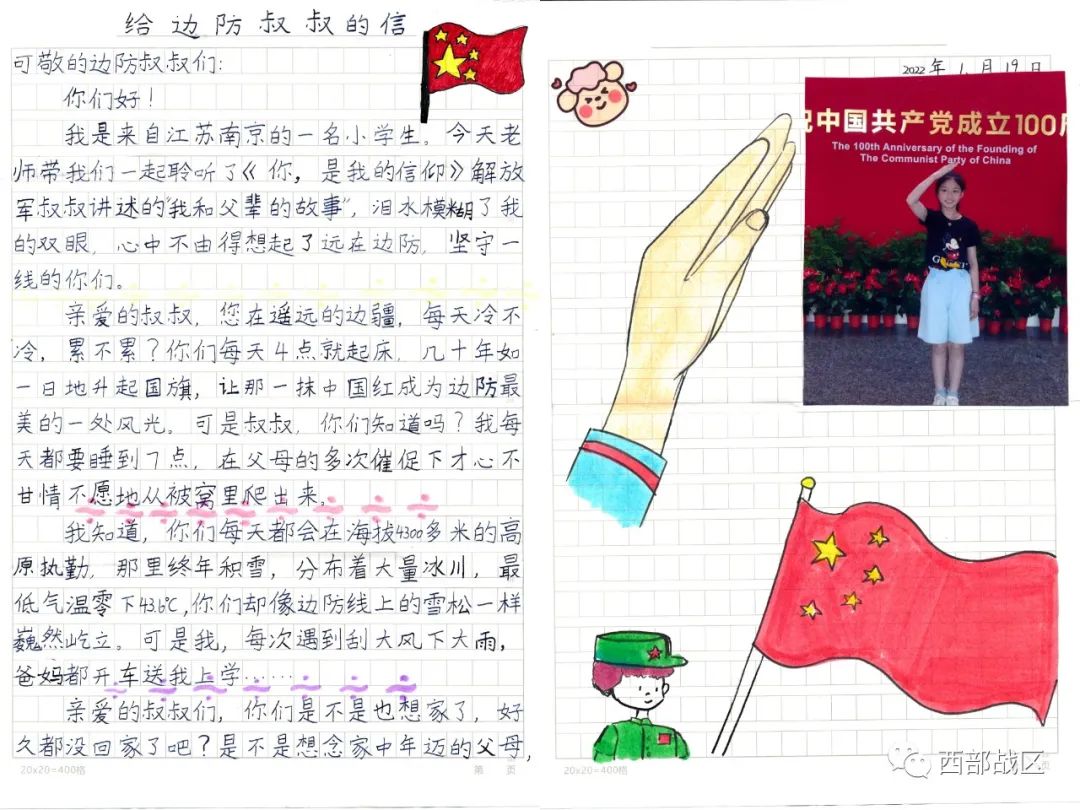 给边防叔叔的信
可敬的边防叔叔们:
你们好!
我是来自江苏南京的一名小学生。今天老
师带我们一起聆听了《你,是我的信仰》解放
军叔叔讲述的"我和父辈的故事",泪水模糊了我
的双眼,心中不由得想起了远在边防,坚守一
线的你们。
亲爱的叔叔,您在遥远的边疆,每天冷不
冷,累不累?你们每天4点就起床,几十年如
一日地升起国旗,让那一抹中国红成为边防最
美的一处风光。可是叔叔,你们知道吗?我每
天都要睡到7点,在父母的多次催促下才心不
甘情不愿地从被窝里爬出来。
我知道,你们每天都会在海拔4300多米的高
原执勤,那里终年积雪,分布着大量冰川,最
低气温零下43.6℃,你们却像边防线上的雪松一样
巍然屹立。可是我,每次遇到刮大风下大雨,
爸妈都开车送我上学……
亲爱的叔叔们,你们是不是也想家了,好
久都没回家了吧?是不是想念家中年迈的父母,
20x20=400格
第 页
2022年1月19日
祝中国共产党成立100周
The 100th Anniversary of the Founding of
The Communist Party of China
20x20=400格
页
西部战区